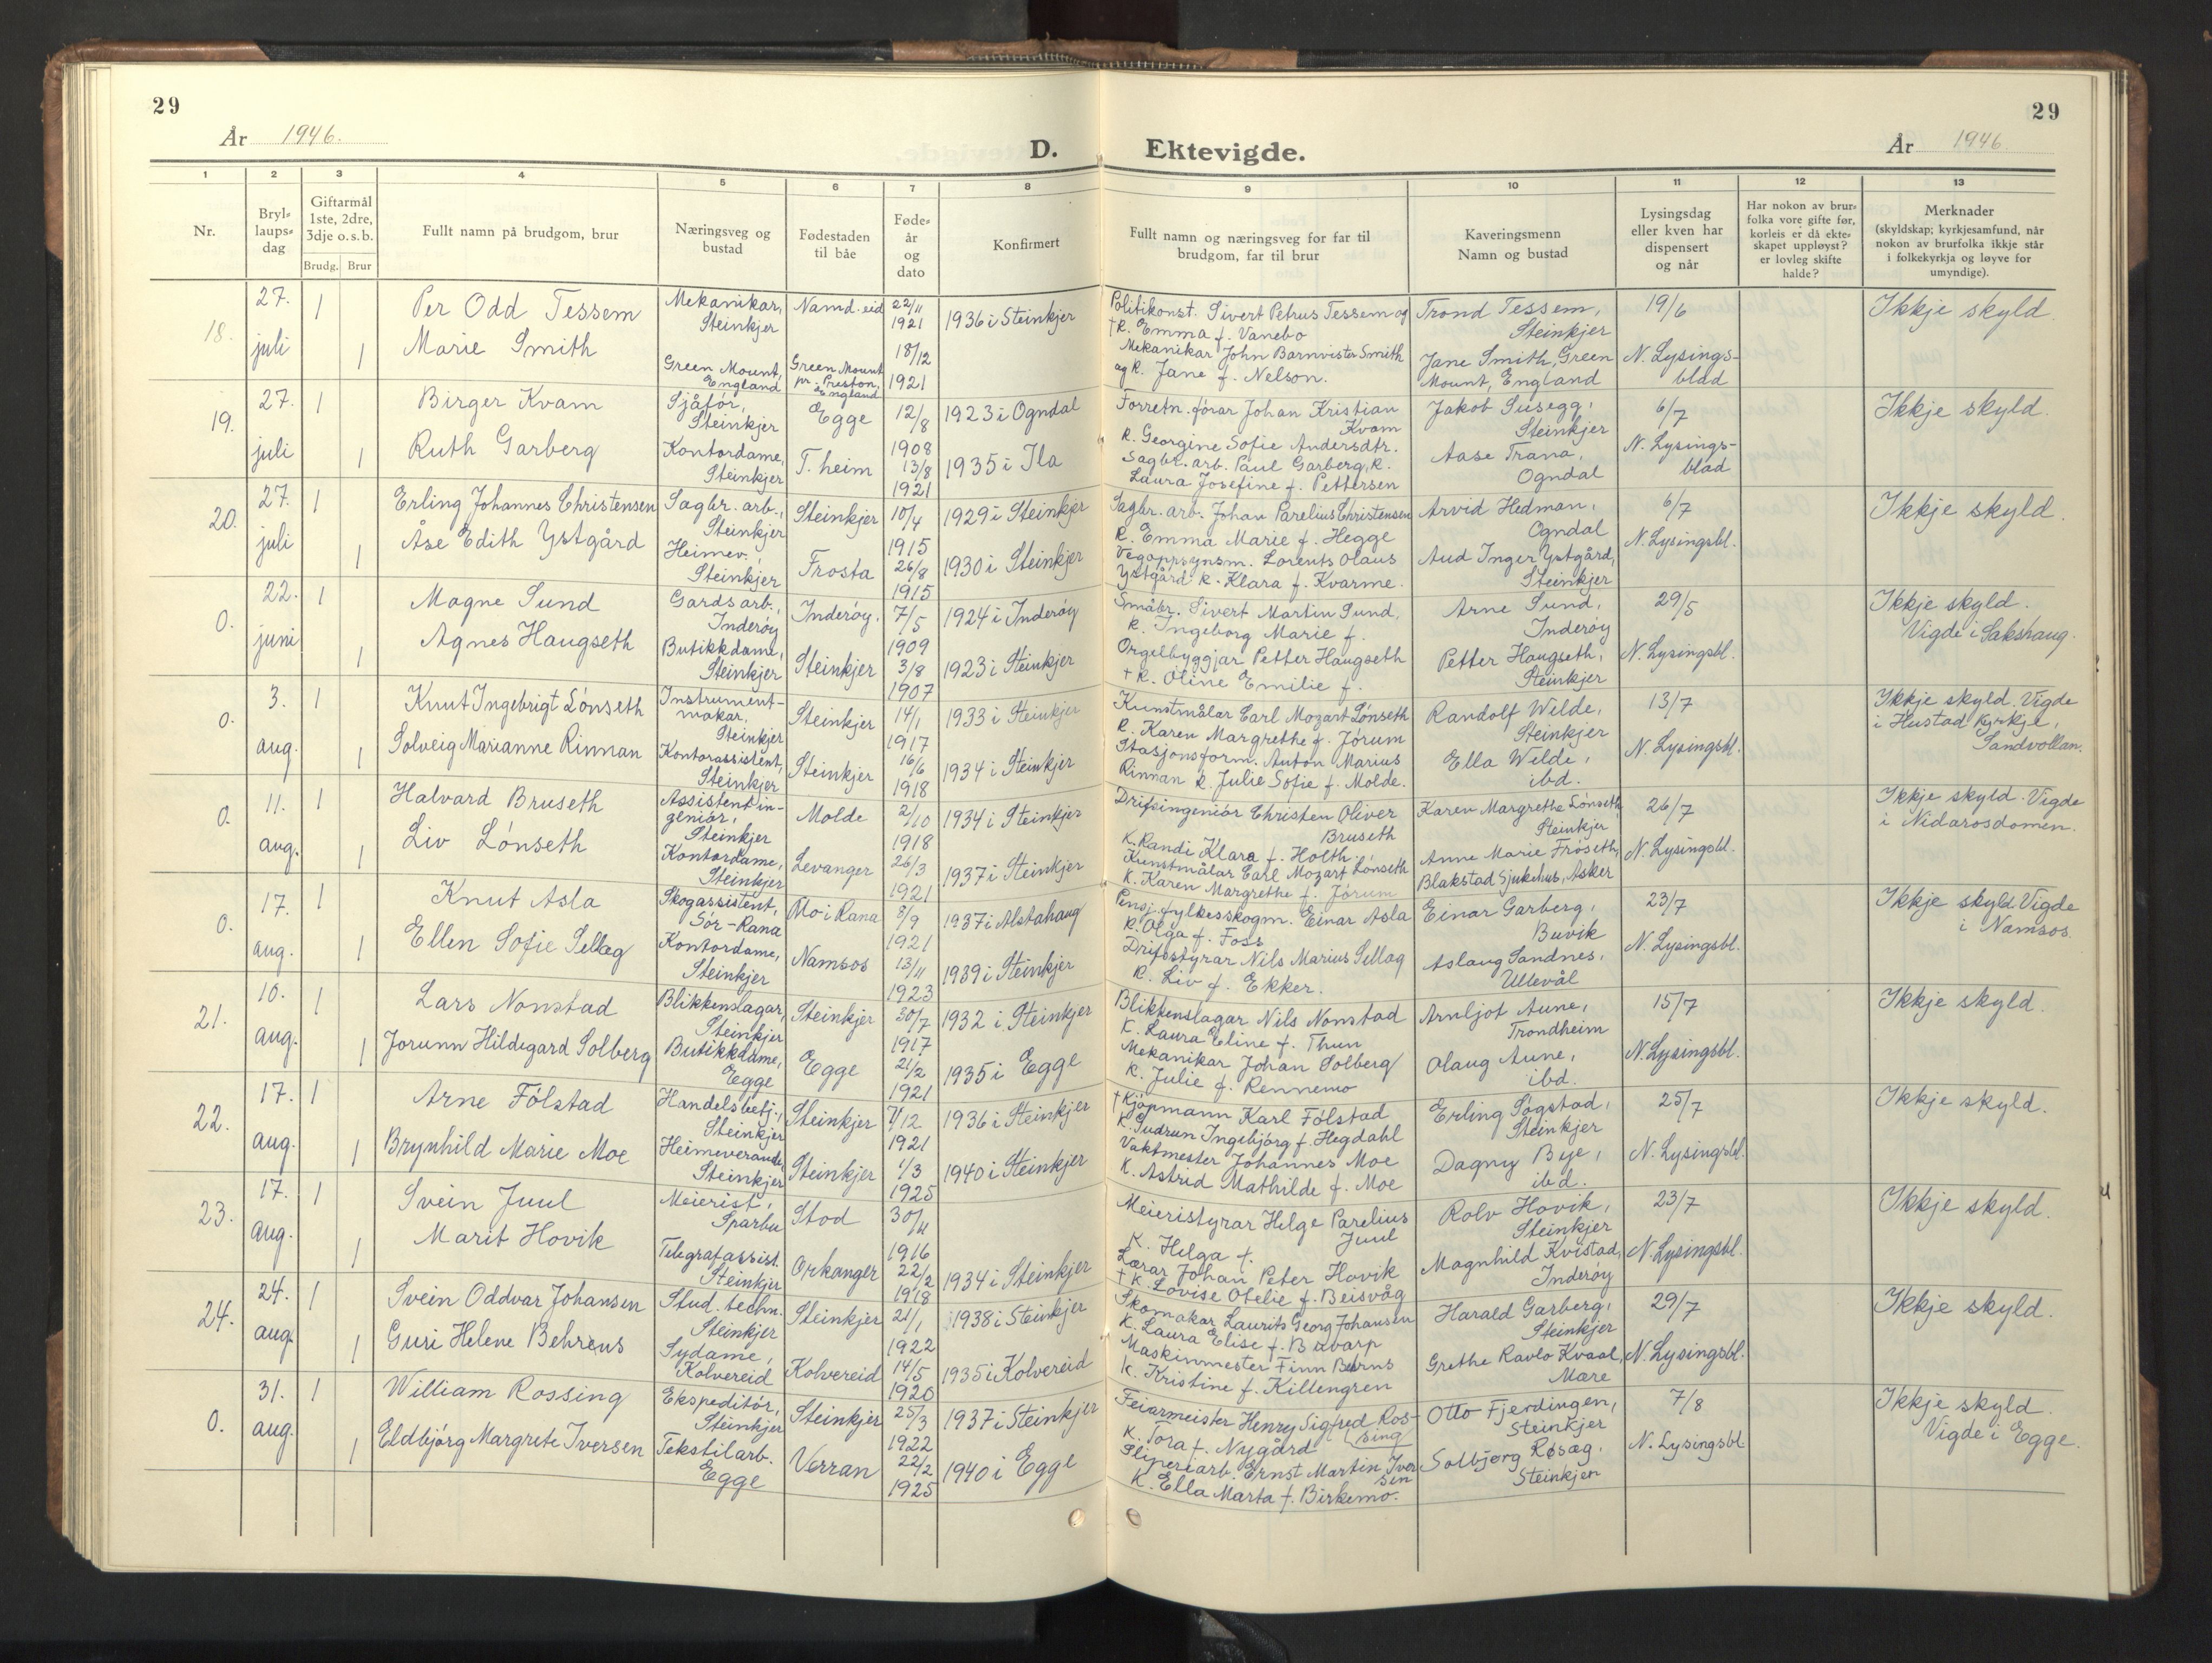 29
År 1946.
D.
1 2 3 4 5 6 7 8
Nr.
Bryl-
laups-
dag
Giftarmål
1ste, 2dre,
3dje o.s.b.
Brudg. Brur
Fullt namn på brudgom, brur
Næringsveg og
bustad
Fødestaden
til båe
Føde-
år
og
dato
Konfirmert
18. 27. juli 1 Per Odd Tessem Mekanikar, Steinkjer Namd.eid 22/11 1921 1936 i Steinkjer
1 Marie Smith Green Mount, England Green Mount pr. Preston, England 18/12 1921
19. 27. juli 1 Birger Kvam Sjåför, Steinkjer Egge 12/8 1908 1923 i Ogndal
1 Ruth Garberg Kontordame, Steinkjer T.heim 13/8 1921 1935 i Ila
20. 27. juli 1 Erling Johannes Christensen Sagbr. arb., Steinkjer Steinkjer 10/4 1915 1929 i Steinkjer
1 Åse Edith Ystgård Heimev., Steinkjer Frosta 26/8 1915 1930 i Steinkjer
0. 22. juni 1 Magne Sund Gardsarb., Inderöy Inderöy. 7/5 1909 1924 i Inderöy
1 Agnes Haugseth Butikkdame, Steinkjer Steinkjer 3/8 1907 1923 i Steinkjer
0. 3. aug. 1 Knut Ingebrigt Lönseth Instrument-makar, Steinkjer Steinkjer 14/1 1917 1933 i Steinkjer
1 Solveig Marianne Rinnan Kontorassistent, Steinkjer Steinkjer 16/6 1918 1934 i Steinkjer
0. 11. aug. 1 Halvard Bruseth Assistentin-geniör, Steinkjer Molde 2/10 1918 1934 i Steinkjer
1 Liv Lönseth Kontordame, Steinkjer Levanger 26/3 1921 1937 i Steinkjer
0. 17. aug. 1 Knut Asla Skogassistent, Sör-Rana Mo i Rana 8/9 1921 1937 i Alstahaug
1 Ellen Sofie Sellæg Kontordame, Steinkjer Namsos 13/11 1923 1939 i Steinkjer
21. 10. aug. 1 Lars Nonstad Blikkenslagar, Steinkjer Steinkjer 30/7 1917 1932 i Steinkjer
1 Jorunn Hildegard Solberg Butikkdame, Egge Egge 21/2 1921 1935 i Egge
22. 17. aug. 1 Arne Fölstad Handelsbetj., Steinkjer Steinkjer 7/12 1921 1936 i Steinkjer
1 Brynhild Marie Moe Heimeverande, Steinkjer Steinkjer 1/3 1925 1940 i Steinkjer
23. 17. aug. 1 Svein Juul Meierist, Sparbu Stod 30/11 1916
1 Marit Hovik Telegrafassist. Steinkjer Orkanger 22/2 1918 1934 i Steinkjer
24. 24. aug. 1 Svein Oddvar Johansen Stud. techn. Steinkjer Steinkjer 21/1 1922 1938 i Steinkjer
1 Guri Helene Behrens Sydame, Kolvereid Kolvereid 14/5 1920 1935 i Kolvereid
0. 31. aug. 1 William Rossing Ekspeditör, Steinkjer Steinkjer 25/3 1922 1937 i Steinkjer
1 Eldbjörg Margrete Iversen Tekstilarb. Egge Verran 22/2 1925 1940 i Egge
29
Ektevigde.
År 1946.
9 10 11 12 13
Fullt namn og næringsveg for far til
brudgom, far til brur
Kaveringsmenn
Namn og bustad
Lysingsdag
eller kven har
dispensert
og når
Har nokon av brur-
folka vore gifte før,
korleis er då ekte-
skapet uppløyst?
er lovleg skifte
halde?
Merknader
(skyldskap; kyrkjesamfund, når
nokon av brurfolka ikkje står
i folkekyrkja og løyve for
umyndige).
Politikonst. Sivert Petrus Tessem og †K. Emma f. Vanebo Trond Tessem, Steinkjer 19/6 Ikkje skyld.
Mekanikar John Barnvister Smith og K. Jane f. Nelson. Jane Smith, Green Mount, England N. Lysings-blad
Forretn.förar Johan Kristian Kvam K. Georgine Sofie Andersdtr. Jakob Susegg, Steinkjer 6/7 Ikkje skyld.
Sagbr. arb. Paul Garberg, K. Laura Josefine f. Pettersen Aase Trana, Ogndal N. Lysings-blad
Sagbr. arb. Johan Parelius Christensen K. Emma Marie f. Hegge Arvid Hedman, Ogndal 6/7 Ikkje skyld.
Vegoppsynsm. Lorents Olaus Ystgård K. Klara f. Kvarme. Aud Inger Ystgård, Steinkjer N. Lysingsbl.
Småbr. Sivert Martin Sund, K. Ingeborg Marie f. Arne Sund, Inderöy 29/5 Ikkje skyld. Vigde i Sakshaug.
Orgelbyggjar Petter Haugseth †K. Oline Emilie f. Petter Haugseth, Steinkjer N. Lysingsbl.
Kunstmålar Carl Mozart Lönseth K. Karen Margrethe f. Jörum Randolf Welde, Steinkjer 13/7 Ikkje skyld. Vigde i Hustad kyrkje, Sandvollan.
Stasjonsform. Anton Marius Rinnan K. Julie Sofie f. Molde. Ella Welde, ibd. N. Lysingsbl.
Drifsingeniör Christen Oliver Bruseth K. Randi Klara f. Holth. Karen Margrethe Lönseth, Steinkjer 26/7 Ikkje skyld. Vigde i Nidarosdomen.
Kunstmålar Carl Mozart Lönseth K. Karen Margrethe f. Jörum Anne Marie Fröseth, Blakstad Sjukehus, Asker N. Lysingsbl.
Pensj. fylkesskogm. Einar Asla K. Olga f. Foss Einar Garberg, Buvik 23/7 Ikkje skyld. Vigde i Namsos.
Drifsstyrar Nils Marius Sellæg K. Liv f. Ekker. Aslaug Sandnes, Ullevål N. Lysingsbl.
Blikkenslagar Nils Nonstad K. Laura Eline f. Thun Arnljot Aune, Trondheim 15/7 Ikkje skyld.
Mekanikar Johan Solberg K. Julie f. Rennemo Olaug Aune, ibd. N. Lysingsbl.
†Kjöpmann Karl Fölstad K. Gudrun Ingebjörg f. Hegdahl Erling Sögstad, Steinkjer 25/7 Ikkje skyld.
Vaktmester Johannes Moe K. Astrid Mathilde f. Moe Dagny Bye, ibd. N. Lysingsbl.
Meieristyrar Helge Parelius Juul K. Helga f. Rolv Hovik, Steinkjer 23/7 Ikkje skyld.
Lærar Johan Peter Hovik †K. Lovise Otelie f. Beisvåg Magnhild Kvistad, Inderöy N. Lysingsbl.
Skomakar Laurits Georg Johansen K. Laura Elise f. Harald Garberg, Steinkjer 29/7 Ikkje skyld.
Maskinmester Finn K. Kristine f. Killengren Grethe Ravlo Kvaal, Mære N. Lysingsbl.
Feiarmeister Henry Sigfred Rossing K. Tora f. Nygård Otto Fjerdingen, Steinkjer 7/8 Ikkje skyld. Vigde i Egge.
Sliperiarb. Ernst Martin Iversen K. Ella Marta f. Birkemo. Solbjørg Røsæg, Steinkjer N. Lysingsbl.